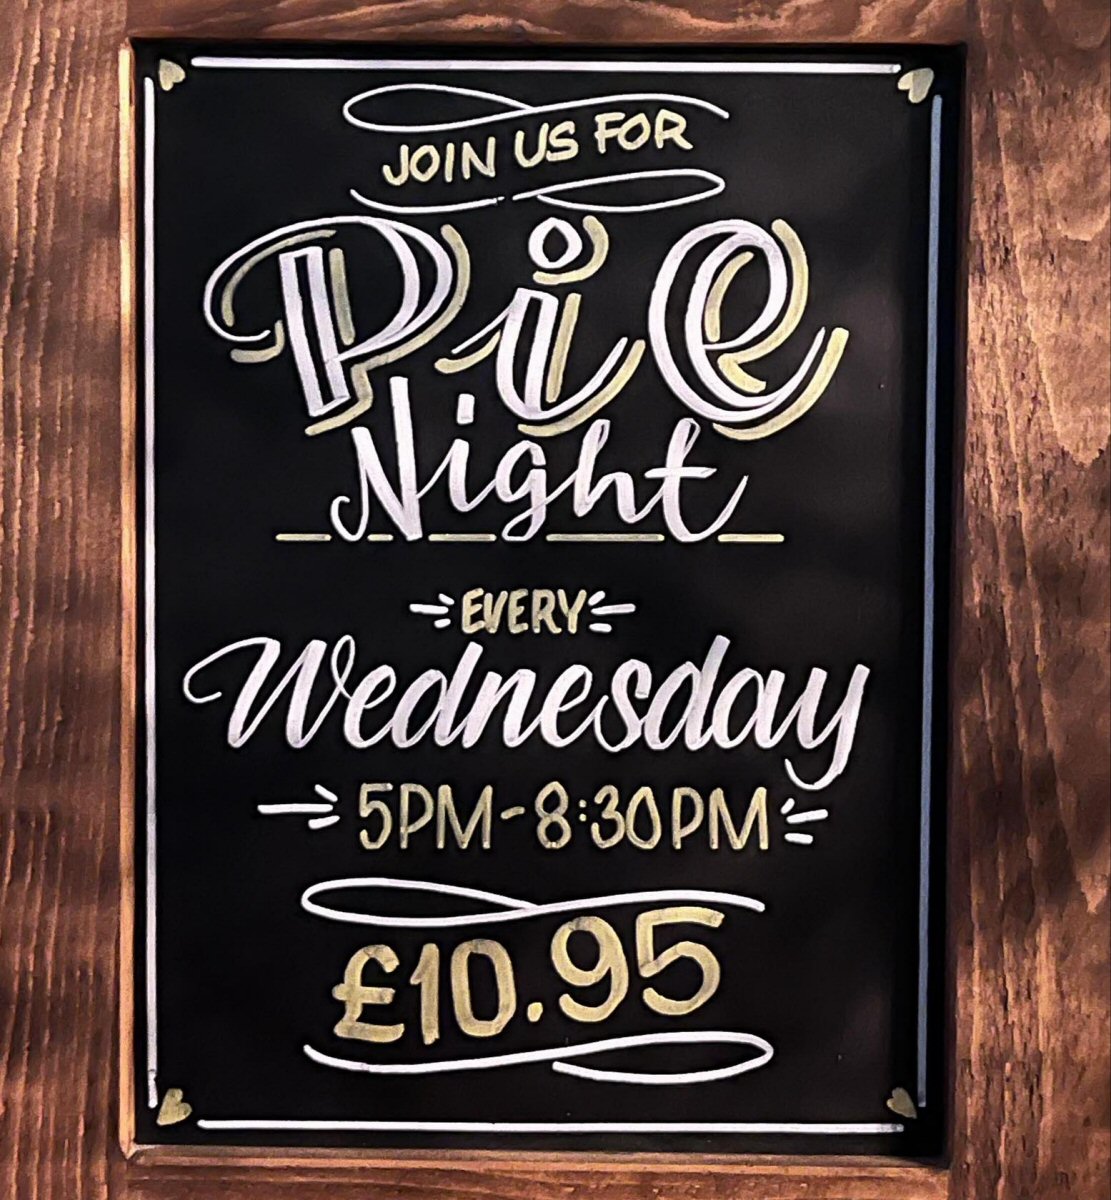 JOIN US FOR
Pie
Night
EVERY
Wednesday
5PM-8:30PM
£10.95